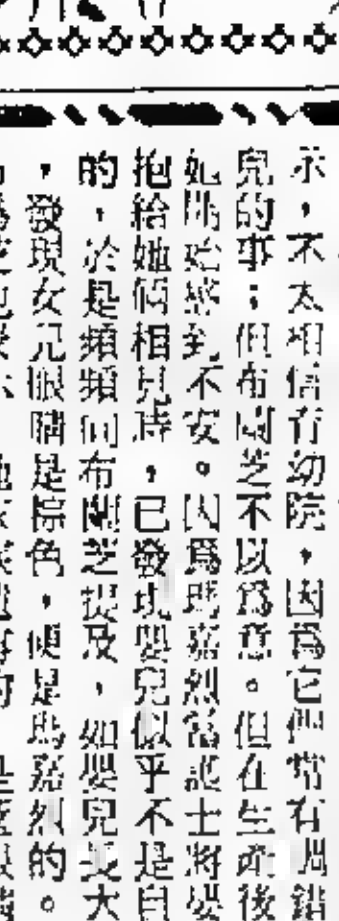 示，不太相信育幼院，因爲它們常有調錯
兒的事；但布蘭芝不以爲意。但在生產後
她開始感到不安。因爲瑪嘉烈當護士將嬰
抱給她倆相見時，已發現嬰兒似乎不是自
的，於是頻頻向布蘭芝提及，如嬰兒長大
，發現女兒眼睛是棕色，便是瑪嘉烈的。